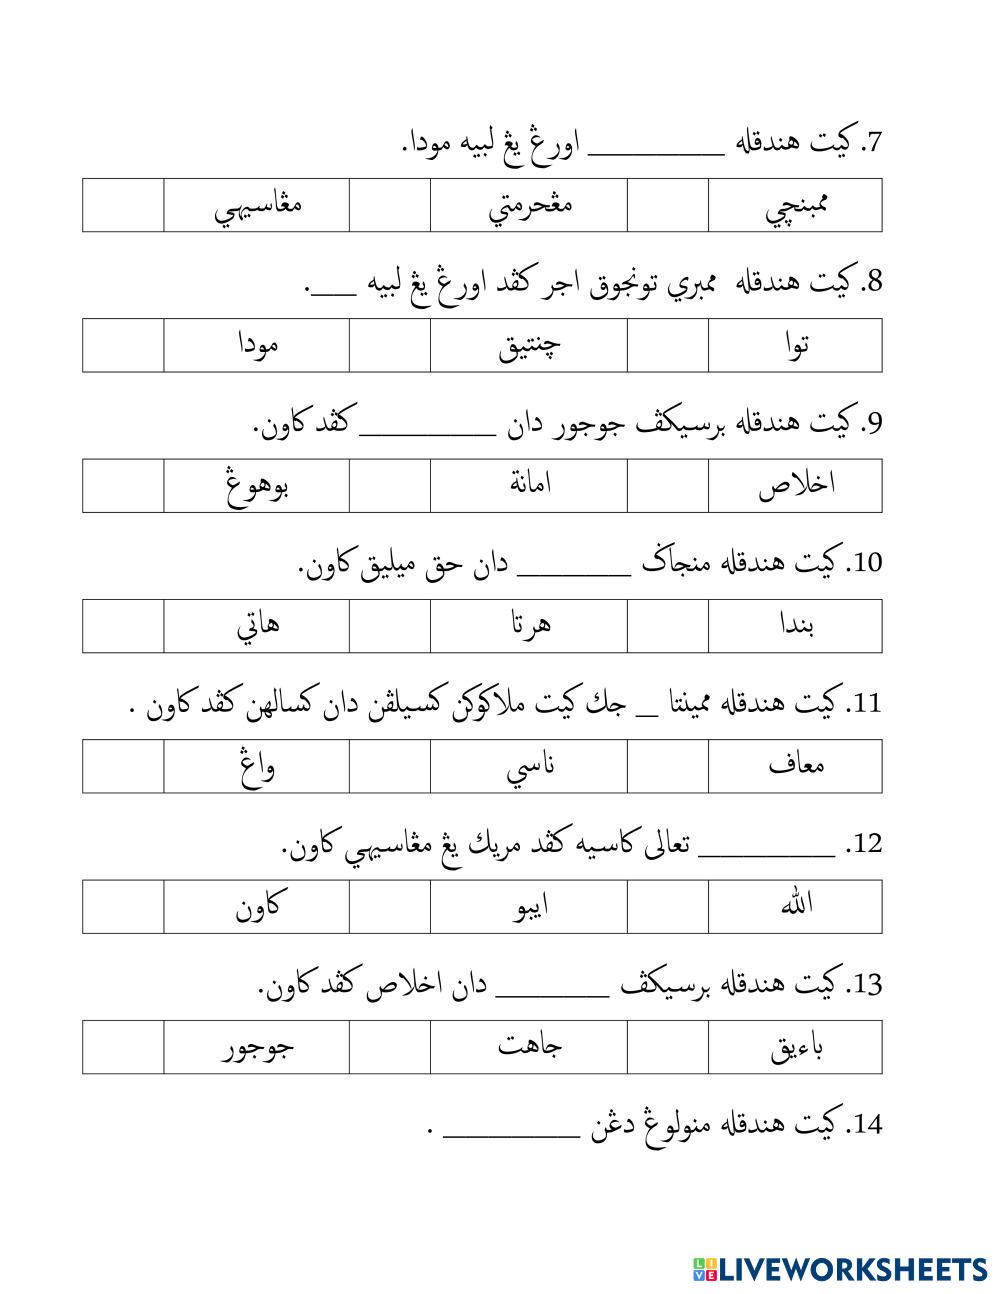 7. كيت هندقله ____________ اورڠ يڠ لبيه مودا.
ممبنچي مڠحرمتي مڠاسيهي
8. كيت هندقله ممبري تونجوق اجر كڤد اورڠ يڠ لبيه ____.
توا چنتيق مودا
9. كيت هندقله برسيكڤ جوجور دان ____________ كڤد كاون.
اخلاص امانة بوهوڠ
10. كيت هندقله منجاݢ __________ دان حق ميليق كاون.
بندا هرتا هاتي
11. كيت هندقله ممينتا __ جك كيت ملاكوكن كسيلڤن دان كسالهن كڤد كاون .
معاف ناسي واڠ
12. ____________ تعالى كاسيه كڤد مريك يڠ مڠاسيهي كاون.
الله ايبو كاون
13. كيت هندقله برسيكڤ __________ دان اخلاص كڤد كاون.
باءيق جاهت جوجور
14. كيت هندقله منولوڠ دڠن ____________ .
LIVEWORKSHEETS